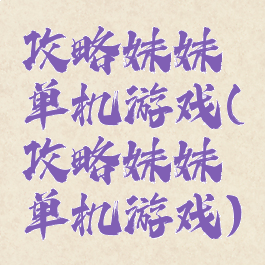 攻略妹妹
单机游戏(
攻略妹妹
单机游戏)